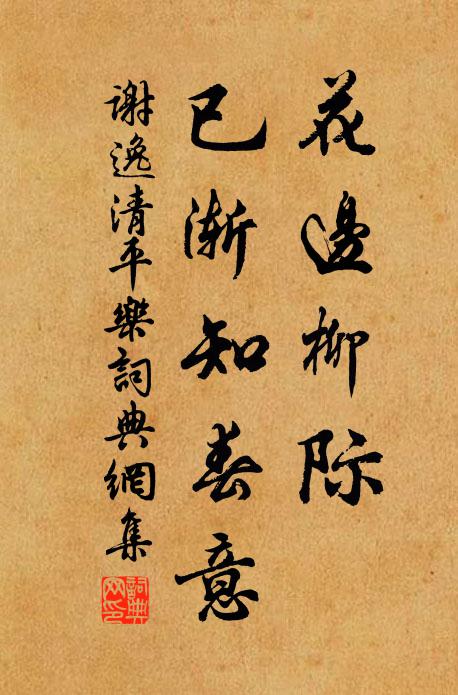 花邊柳際
已漸知春意
謝逸清平樂詞典網集
詞典網印